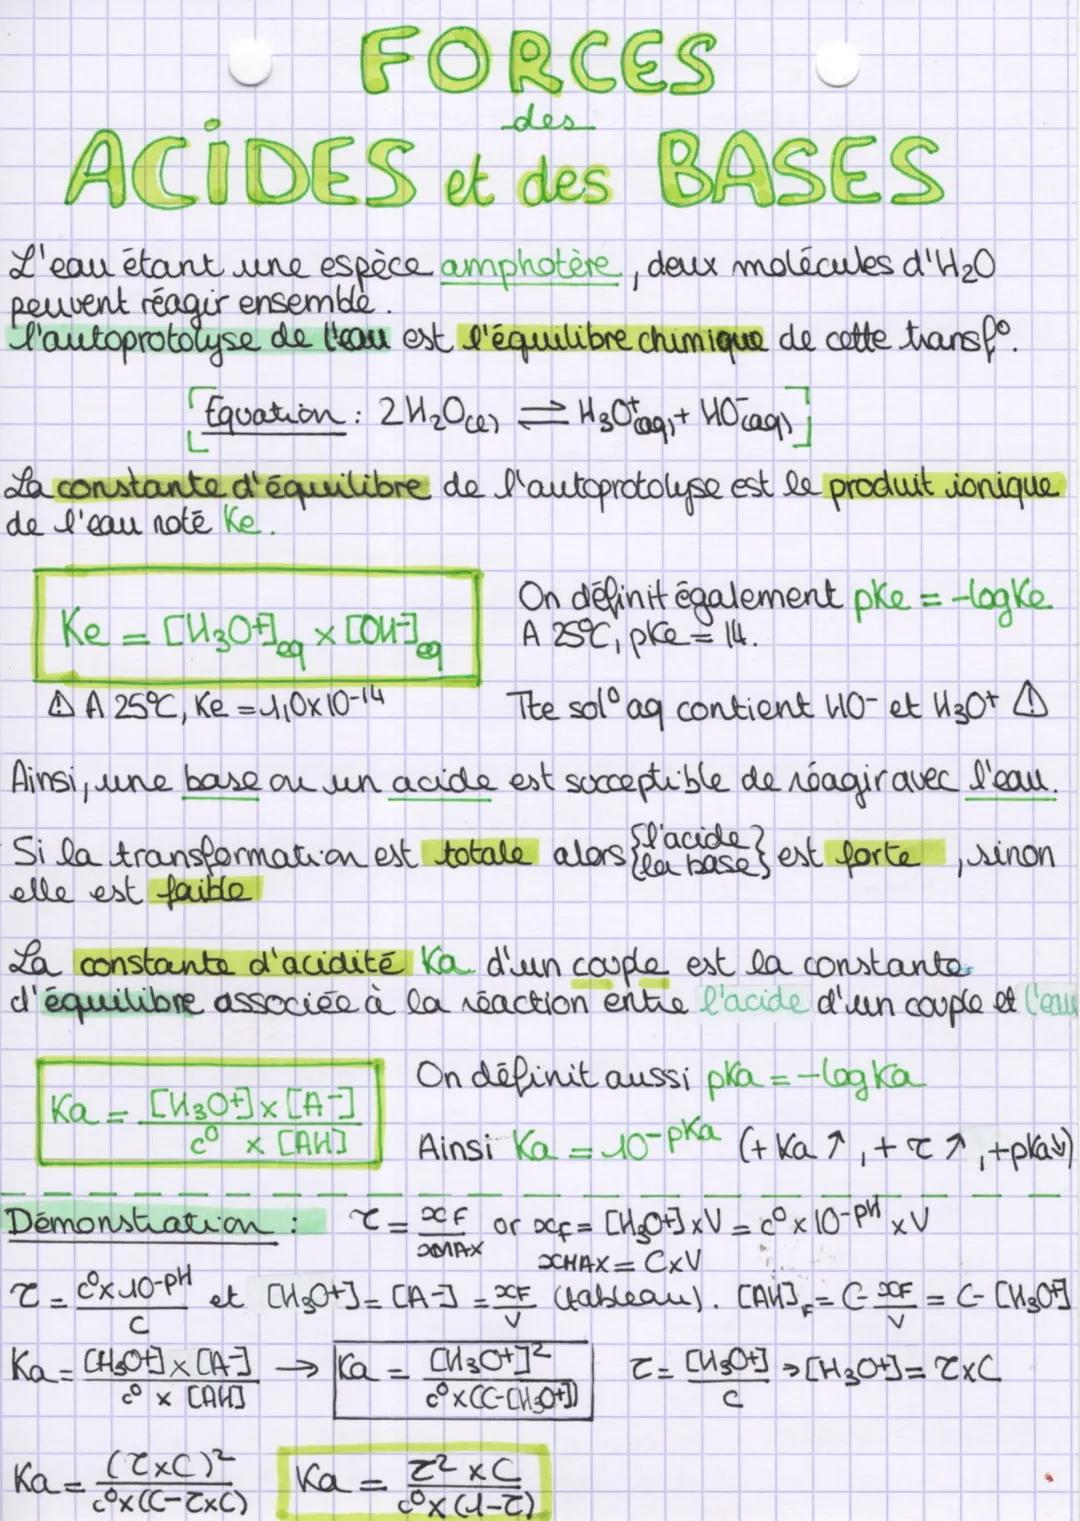 FORCES
des
ACIDES et des BASES
L'eau étant une espèce amphotère, deux molécules d'H₂O
peuvent réagir ensemble.
l'autoprotolyse de l'eau est l'équilibre chimique de cette transf°.
Equation : 2H₂O(l) ⇌ H₃O⁺(aq) + HO⁻(aq)
La constante d'équilibre de l'autoprotolyse est le produit ionique
de l'eau noté Ke.
Ke = [H₃O⁺]eq × [OH⁻]eq
On définit également pKe = -log Ke
A 25°C, pKe = 14.
⚠ A 25°C, Ke = 1,0×10⁻¹⁴
Tte sol° aq contient HO⁻ et H₃O⁺ ⚠
Ainsi, une base ou un acide est succeptible de réagir avec l'eau.
Si la transformation est totale alors {l'acide / la base} est forte, sinon
elle est faible
La constante d'acidité Ka d'un couple est la constante
d'équilibre associée à la réaction entre l'acide d'un couple et l'eau
Ka = [H₃O⁺] × [A⁻] / c° × [AH]
On définit aussi pKa = -log Ka
Ainsi Ka = 10⁻ᵖᴷᵃ (+ Ka ↗, + τ ↗, + pKa ↘)
Démonstration : τ = xF / xMAX or xF = [H₃O⁺] × V = c° × 10⁻ᵖᴴ × V
xMAX = C×V
τ = c° × 10⁻ᵖᴴ / C et [H₃O⁺] = [A⁻] = xF / V (tableau). [AH]F = C - xF / V = C - [H₃O⁺]
Ka = [H₃O⁺] × [A⁻] / c° × [AH] → Ka = [H₃O⁺]² / c° × (C-[H₃O⁺]) τ = [H₃O⁺] / C → [H₃O⁺] = τ×C
Ka = (τ×C)² / c° × (C-τ×C) Ka = τ² × C / c° × (1-τ)